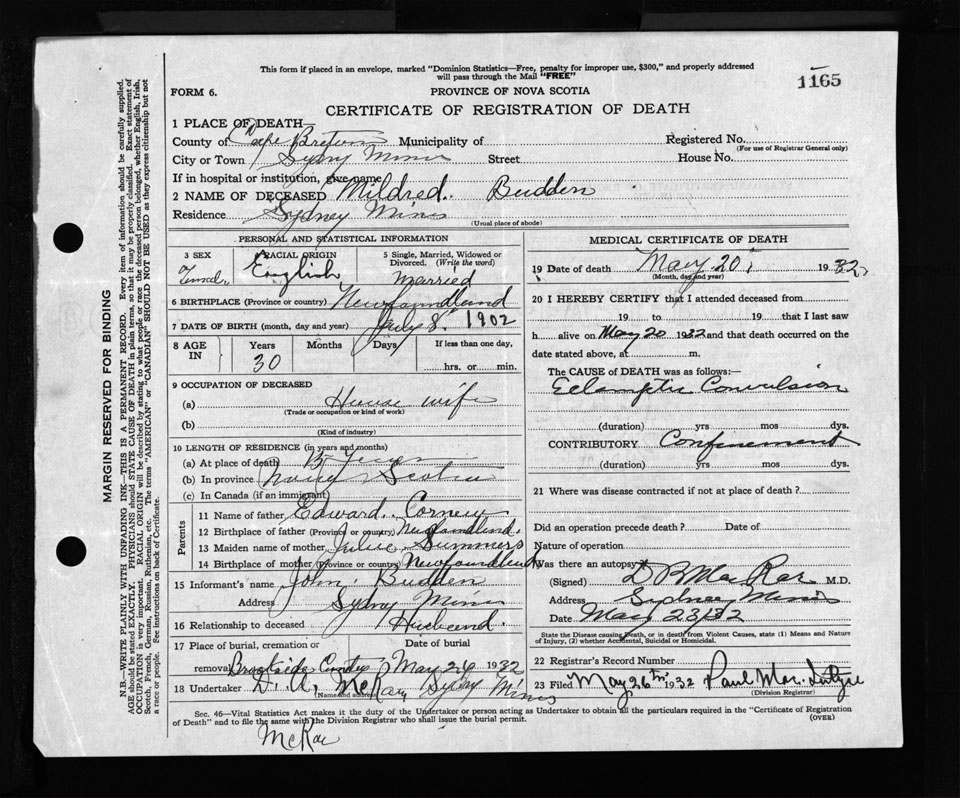 This form if placed in an envelope, marked "Dominion Statistics—Free, penalty for improper use, $300," and properly addressed
will pass through the Mail "FREE"
1165
FORM 6.
PROVINCE OF NOVA SCOTIA
CERTIFICATE OF REGISTRATION OF DEATH
1 PLACE OF DEATH—
County of Cape Breton Municipality of Registered No.
(For use of Registrar General only)
City or Town Sydney Mines Street House No.
If in hospital or institution, give name
2 NAME OF DECEASED Mildred Budden
Residence Sydney Mines
(Usual place of abode)
PERSONAL AND STATISTICAL INFORMATION
3 SEX 4 RACIAL ORIGIN 5 Single, Married, Widowed or
Divorced. (Write the word)
English Married
6 BIRTHPLACE (Province or country) Newfoundland
7 DATE OF BIRTH (month, day and year) July 8 1902
8 AGE IN Years Months Days If less than one day,
30 hrs. or min.
9 OCCUPATION OF DECEASED
(a) House wife
(Trade or occupation or kind of work)
(b)
(Kind of industry)
10 LENGTH OF RESIDENCE (in years and months)
(a) At place of death 15 Years
(b) In province Nova Scotia
(c) In Canada (if an immigrant)
Parents
11 Name of father Edward
12 Birthplace of father (Province or country)
13 Maiden name of mother Julie Summers
14 Birthplace of mother (Province or country) Newfoundland
15 Informant's name John Budden
Address Sydney Mines
16 Relationship to deceased Husband.
17 Place of burial, cremation or Date of burial
removal Brookside May 24 1932
18 Undertaker D. A. McRae, Sydney Mines
(Name and address)
MEDICAL CERTIFICATE OF DEATH
19 Date of death May 20, 1932
(Month, day and year)
20 I HEREBY CERTIFY that I attended deceased from
19 to 19 that I last saw
h alive on May 20 1932 and that death occurred on the
date stated above, at m.
The CAUSE of DEATH was as follows:
Eclamptic Convulsion
(duration) yrs mos dys.
CONTRIBUTORY Confinement
(duration) yrs mos dys.
21 Where was disease contracted if not at place of death?
Did an operation precede death? Date of
Nature of operation
Was there an autopsy?
(Signed) MacRae M.D.
Address Sydney Mines
Date May 23/32
State the Disease causing Death, or in death from Violent Causes, state (1) Means and Nature
of Injury, (2) whether Accidental, Suicidal or Homicidal.
22 Registrar's Record Number
23 Filed May 26th 1932 Paul
(Division Registrar)
Sec. 46—Vital Statistics Act makes it the duty of the Undertaker or person acting as Undertaker to obtain all the particulars required in the "Certificate of Registration
of Death" and to file the same with the Division Registrar who shall issue the burial permit.
(OVER)
McRae
MARGIN RESERVED FOR BINDING
N.B.—WRITE PLAINLY WITH UNFADING INK—THIS IS A PERMANENT RECORD. Every item of information should be carefully supplied.
AGE should be stated EXACTLY. PHYSICIANS should STATE CAUSE OF DEATH in plain terms, so that it may be properly classified. Exact statement of
OCCUPATION is very important. RACIAL ORIGIN will be described by stating to what people or race the deceased person belonged, whether English, Irish,
Scotch, French, German, Russian, Ruthenian, etc. The terms "AMERICAN" or "CANADIAN" SHOULD NOT BE USED as they express citizenship but not
a race or people. See instructions on back of Certificate.